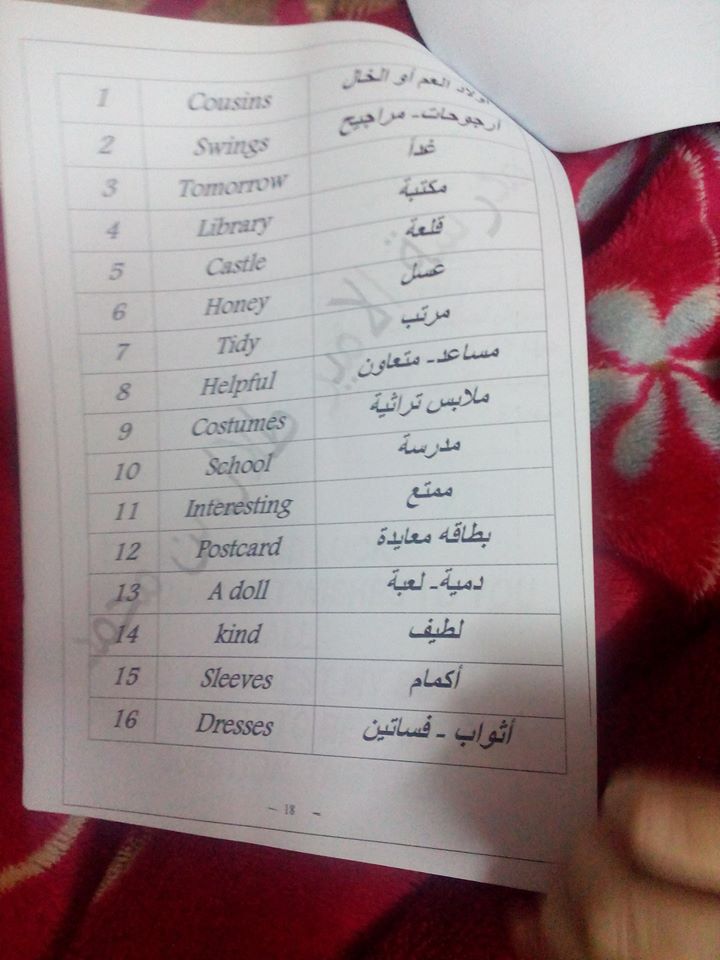 1 Cousins أولاد العم أو الخال
2 Swings أرجوحات- مراجيح
3 Tomorrow غداً
4 Library مكتبة
5 Castle قلعة
6 Honey عسل
7 Tidy مرتب
8 Helpful مساعد- متعاون
9 Costumes ملابس تراثية
10 School مدرسة
11 Interesting ممتع
12 Postcard بطاقه معايدة
13 A doll دمية- لعبة
14 kind لطيف
15 Sleeves أكمام
16 Dresses أثواب - فساتين
- 18 -